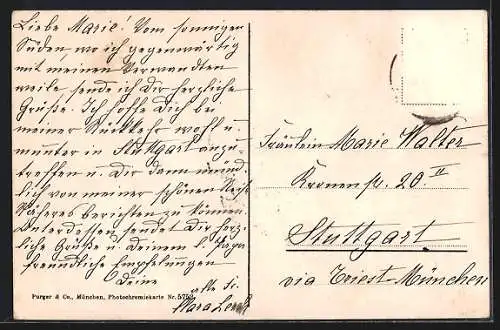 Liebe Marie! Vom sonnigen
Süden, wo ich gegenwärtig
mit meinen Verwandten
weile, sende ich Dir herzliche
Grüße. Ich hoffe Dich bei
meiner Rückkehr wohl u.
munter in Stuttgart anzu-
treffen u. Dir dann münd-
lich von meiner schönen
Näheres berichten zu können.
Unterdessen sendet Dir herz-
liche Grüße u. Deinem l. Papa
freundliche Empfehlungen
Deine
Purger & Co., München, Photochromiekarte Nr.
Fräulein Marie Walter
Kronenstr. 20. II
Stuttgart
via Triest-München